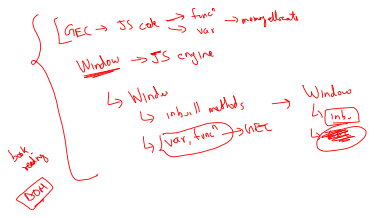 GEC → JS code → funcⁿ
→ var → memory allocate
Window → JS engine
↳ Window
↳ inbuilt methods → Window
↳ var, funcⁿ → GEC
↳ inb.
↳
book
reading
DOM